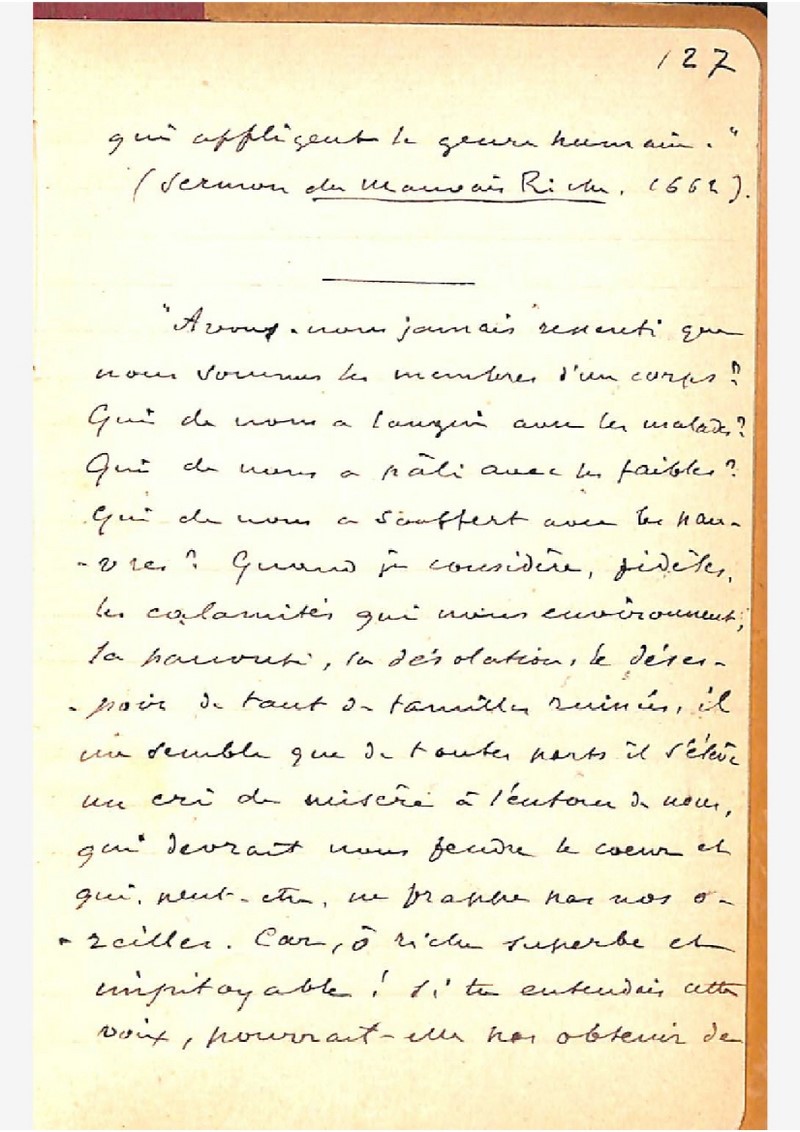 127
qui affligent le genre humain."
(Sermon du Mauvais Riche. 1662).
"Avons-nous jamais ressenti que
nous sommes les membres d'un corps?
Qui de nous a langui avec les malades?
Qui de nous a pâli avec les faibles?
Qui de nous a souffert avec les pau-
-vres? Quand je considère, fidèles,
les calamités qui nous environnent,
la pauvreté, la désolation, le déses-
-poir de tant de familles ruinées, il
me semble que de toutes parts il s'élève
un cri de misère à l'entour de nous,
qui devrait nous fendre le coeur et
qui, peut-être, ne frappe pas nos o-
-reilles. Car, ô riche superbe et
impitoyable! si tu entendais cette
voix, pourrait-elle pas obtenir de